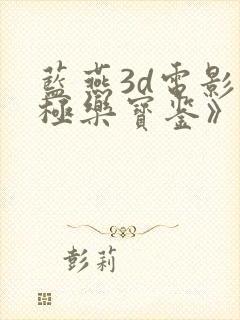 藍燕3d電影
極樂寶鉴》
彭莉